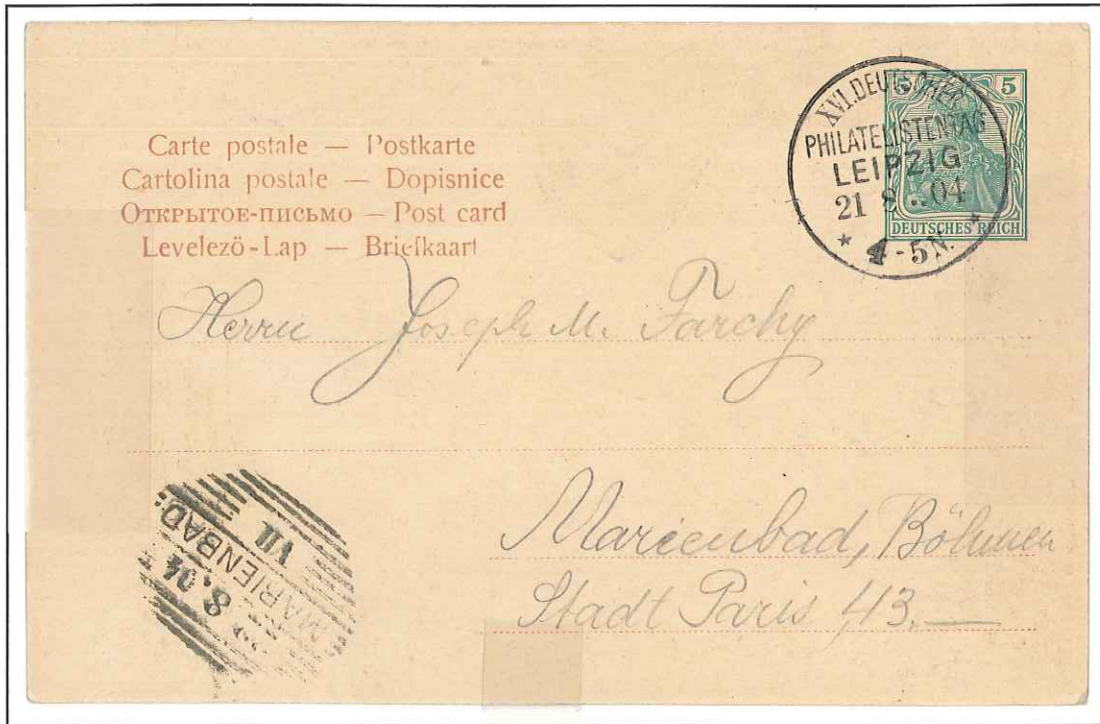 Carte postale — Postkarte
Cartolina postale — Dopisnice
Открытое-письмо — Post card
Levelezö-Lap — Briefkaart
XVI. DEUTSCHER
PHILATELISTENTAG
LEIPZIG
21 8 .. 04
* 4-5N. *
5 5
DEUTSCHES REICH
Herrn Joseph M. Farchy
Marienbad, Böhmen
Stadt Paris 43.—
MARIENBAD
8.04
VII